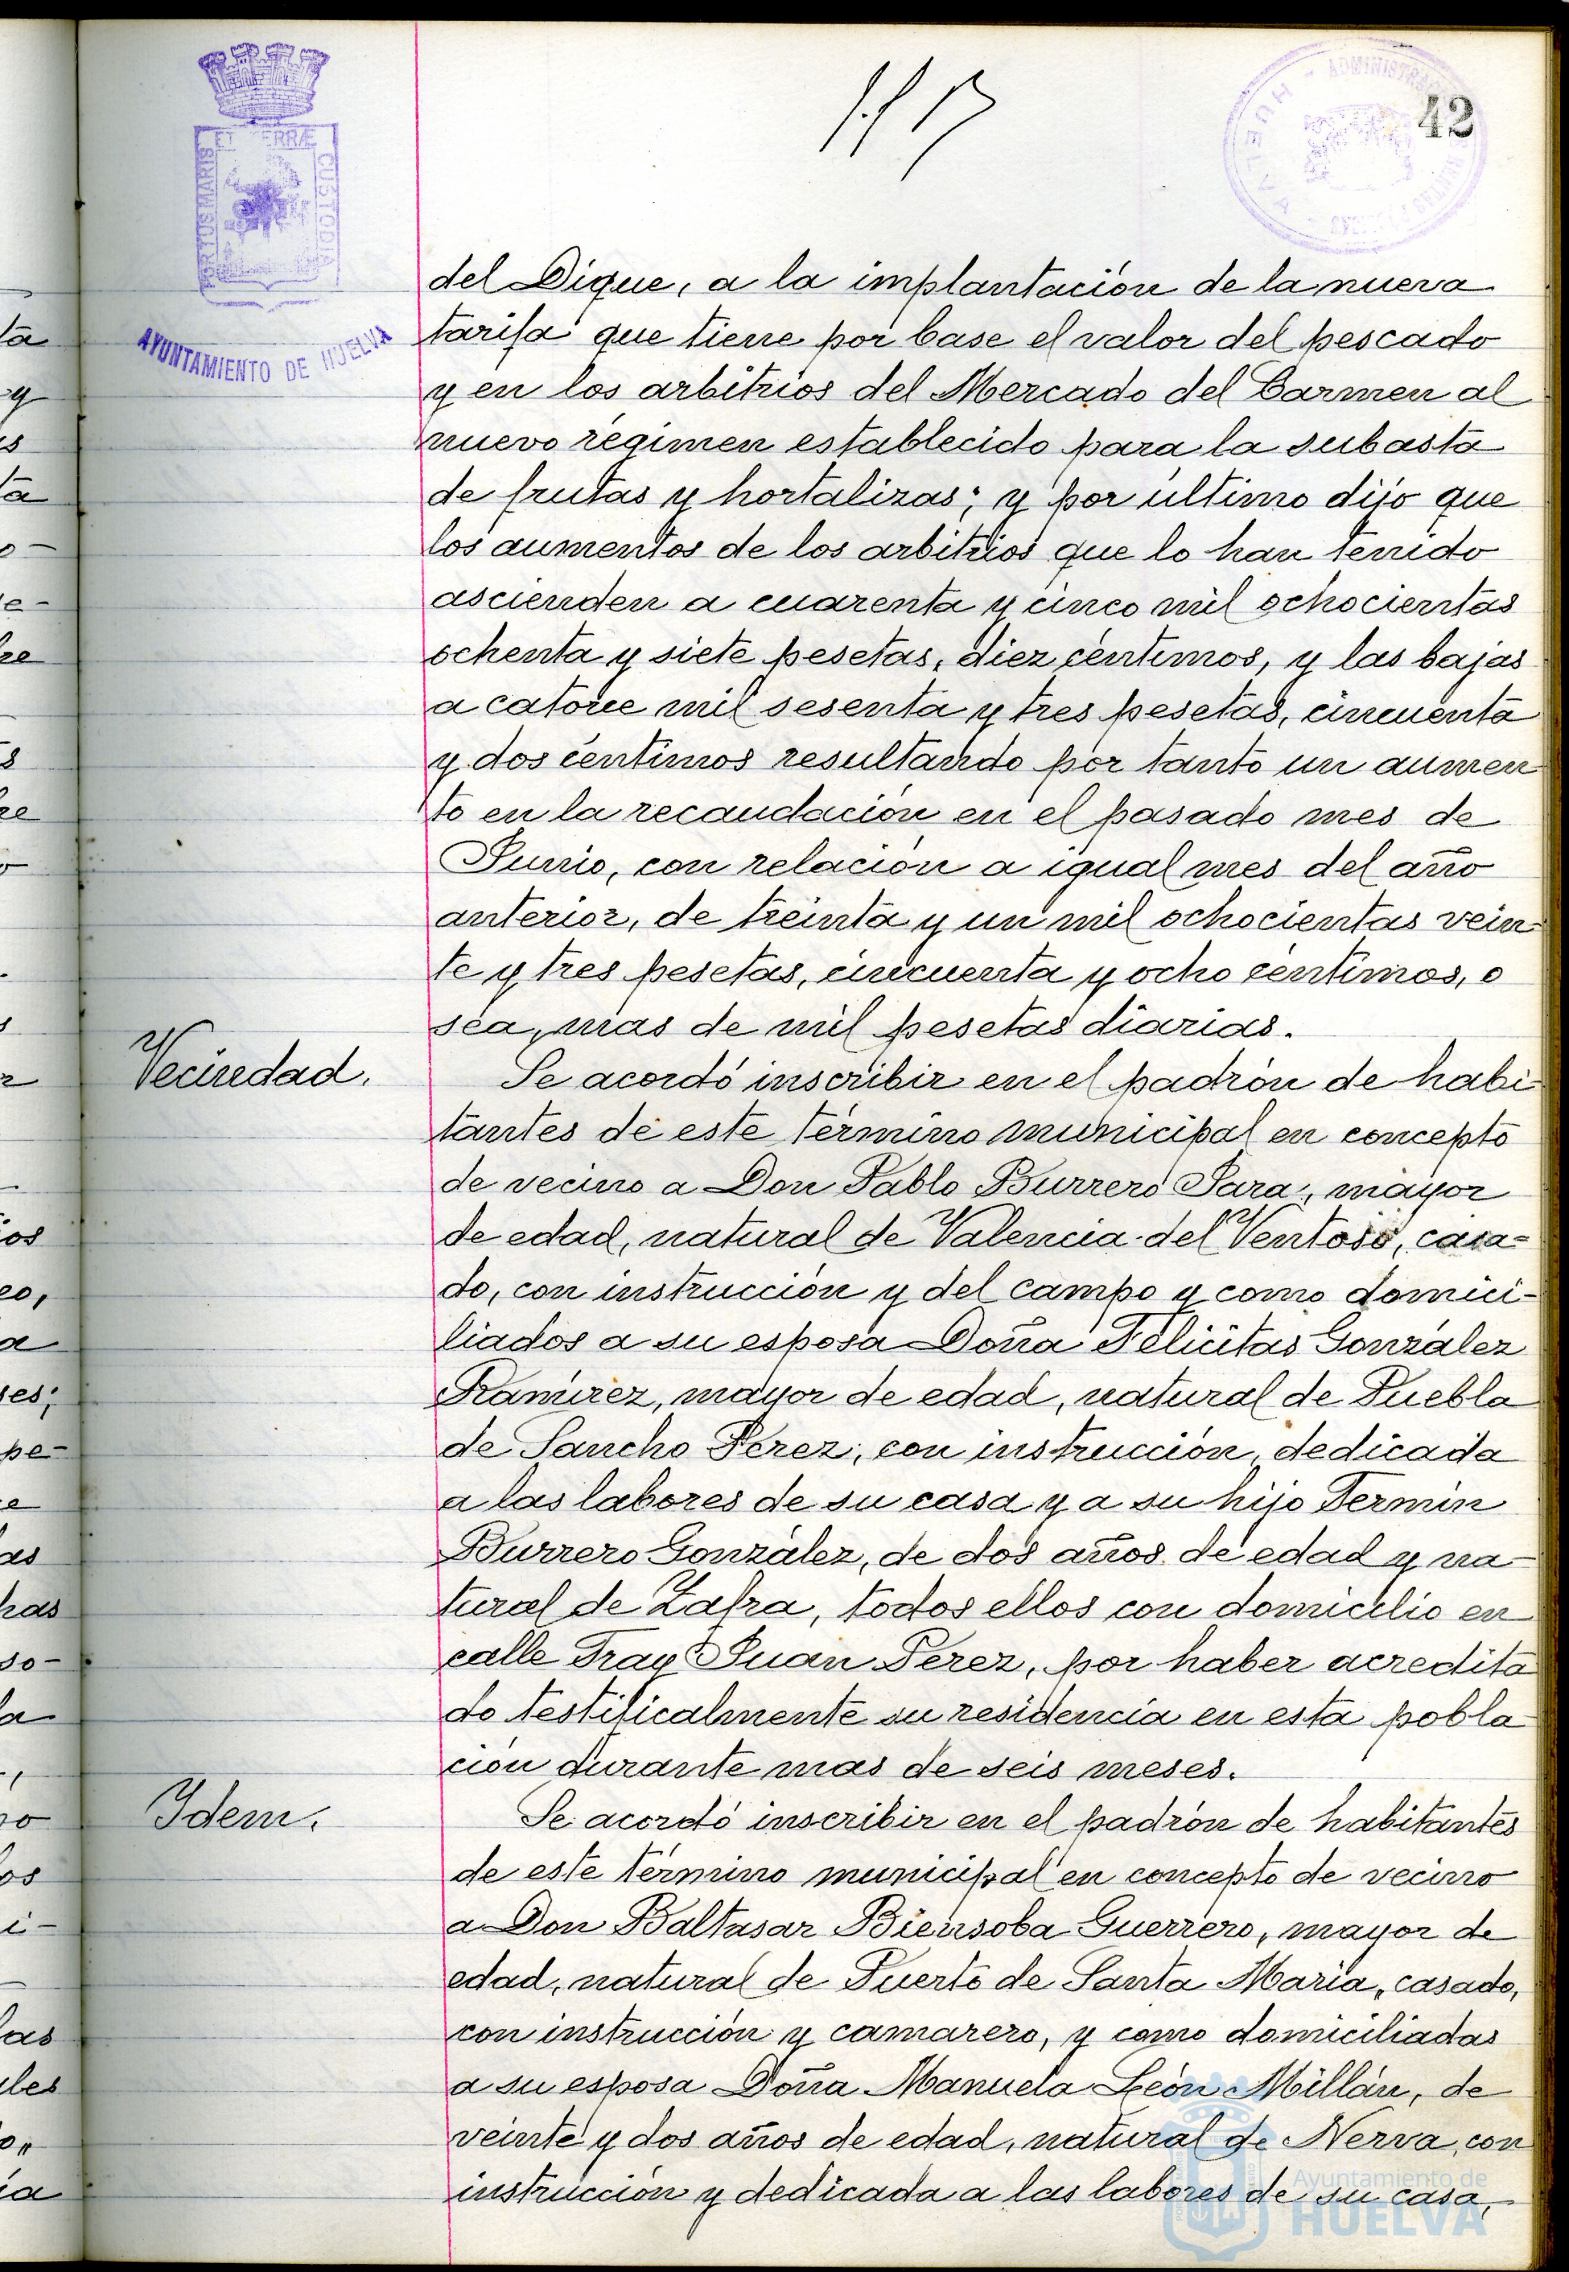 42
ET TERRÆ
PORTUS MARIS
CUSTODIA
AYUNTAMIENTO DE HUELVA
HUELVA
del Dique, a la implantación de la nueva
tarifa que tiene por base el valor del pescado
y en los arbitrios del Mercado del Carmen al
nuevo régimen establecido para la subasta
de frutas y hortalizas; y por último dijo que
los aumentos de los arbitrios que lo han tenido
ascienden a cuarenta y cinco mil ochocientas
ochenta y siete pesetas, diez céntimos, y las bajas
a catorce mil sesenta y tres pesetas, cincuenta
y dos céntimos resultando por tanto un aumen
to en la recaudación en el pasado mes de
Junio, con relación a igual mes del año
anterior, de treinta y un mil ochocientas vein
te y tres pesetas, cincuenta y ocho céntimos, o
sea, mas de mil pesetas diarias.
Vecindad.
Se acordó inscribir en el padrón de habi
tantes de este término municipal en concepto
de vecino a Don Pablo Burrero Jara, mayor
de edad, natural de Valencia del Ventoso, casa=
do, con instrucción y del campo y como domici-
liados a su esposa Doña Felicitas González
Ramírez, mayor de edad, natural de Puebla
de Sancho Pérez, con instrucción, dedicada
a las labores de su casa y a su hijo Fermín
Burrero González, de dos años de edad y na-
tural de Zafra, todos ellos con domicilio en
calle Fray Juan Pérez, por haber acredita
do testificalmente su residencia en esta pobla
ción durante mas de seis meses.
Idem.
Se acordó inscribir en el padrón de habitantes
de este término municipal en concepto de vecino
a Don Baltasar Biensoba Guerrero, mayor de
edad, natural de Puerto de Santa María, casado,
con instrucción y camarero, y como domiciliadas
a su esposa Doña Manuela León Millán, de
veinte y dos años de edad, natural de Nerva, con
instrucción y dedicada a las labores de su casa,
Ayuntamiento de
HUELVA